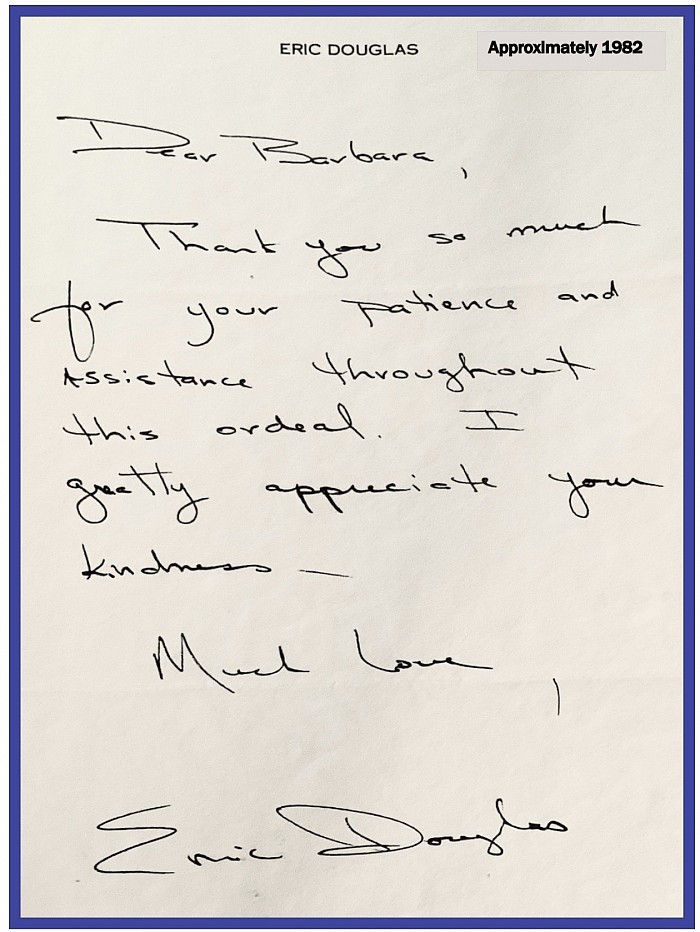 ERIC DOUGLAS
Approximately 1982
Dear Barbara,
Thank you so much
for your patience and
Assistance throughout
this ordeal. I
greatly appreciate your
kindness —
Much Love,
Eric Douglas